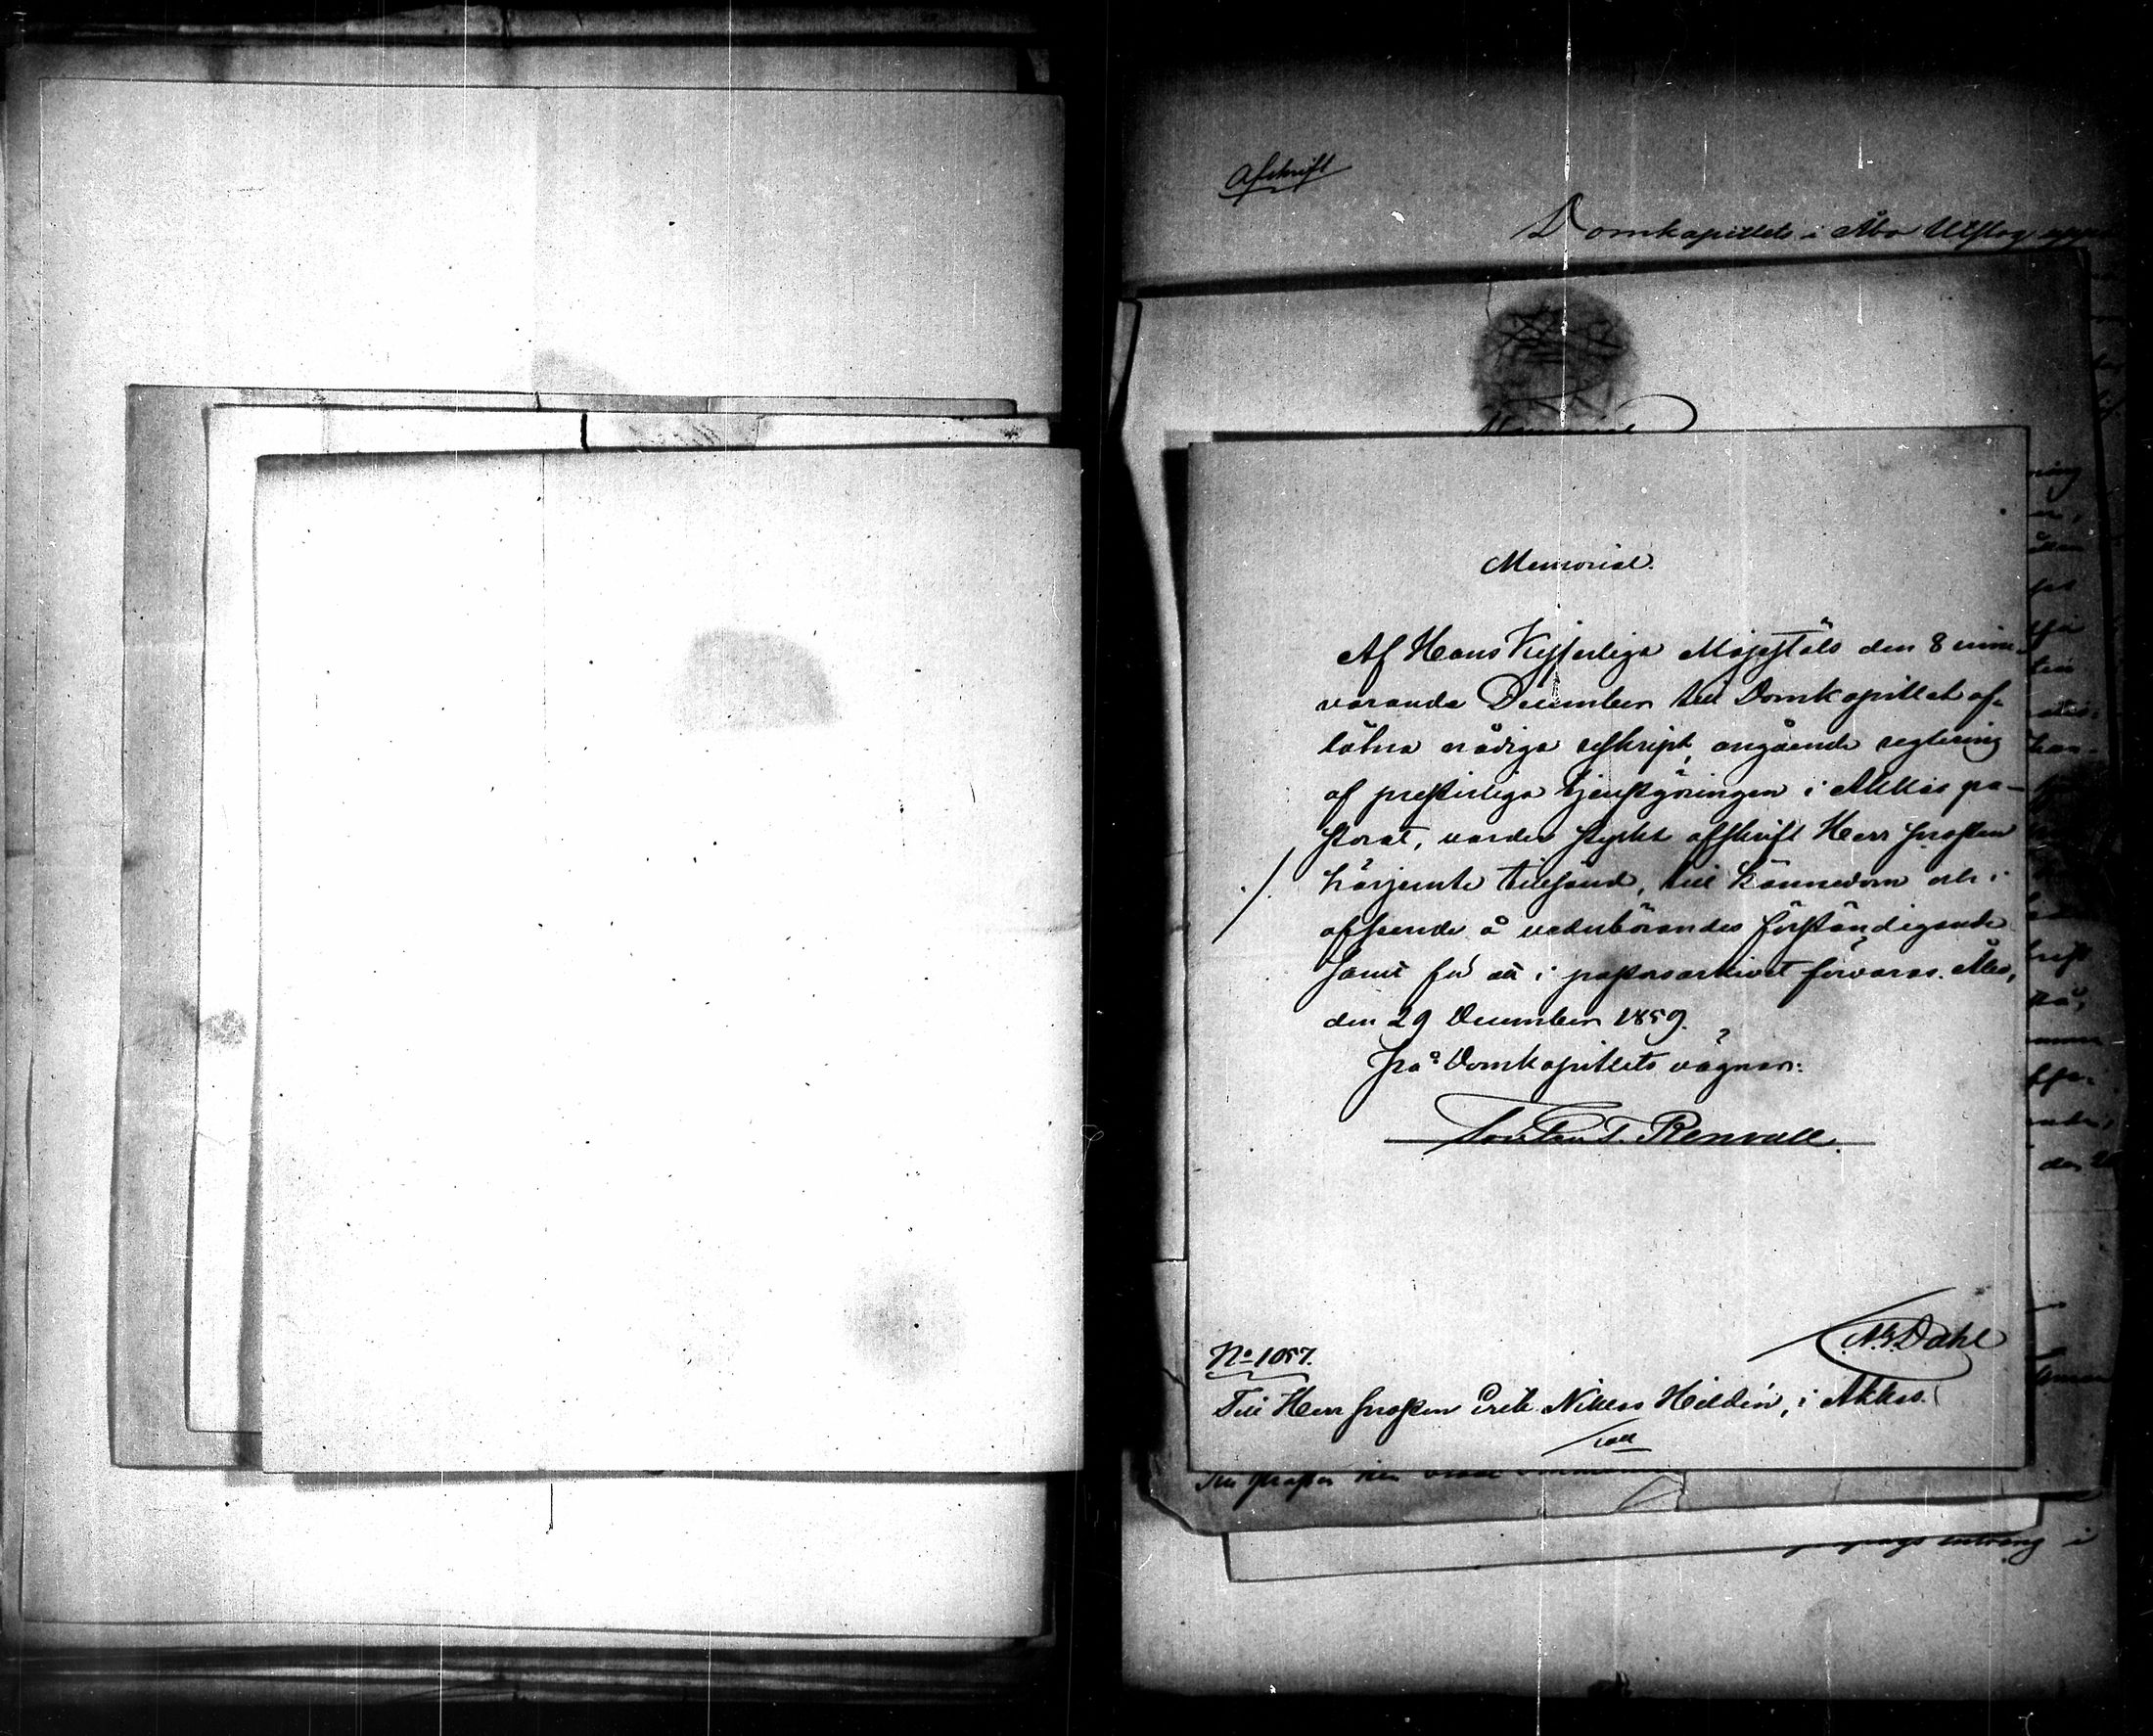 Afskrift
Domkapitlets i Åbo Utslag
Memorial
Memorial.
Af Hans Kejserliga Majestäts den 8 inne-
varande December till Domkapitlet af-
låtna nådiga reskript, angående reglering
af presterliga tjenstgöringen i Akkas pa-
storat, varder styrkt afskrift Herr Prosten
härjemte tillsänd, till kännedom och i
afseende å vederbörandes förständigande
samt för att i pastorsarkivet förvaras. Åbo,
den 29 December 1859.
På Domkapitlets vägnar:
T. T. Renvall.
N. G. Dahl
No 1057.
Till Herr Prosten Erik Niklas Hildén, i Akkas.
den
intrång i